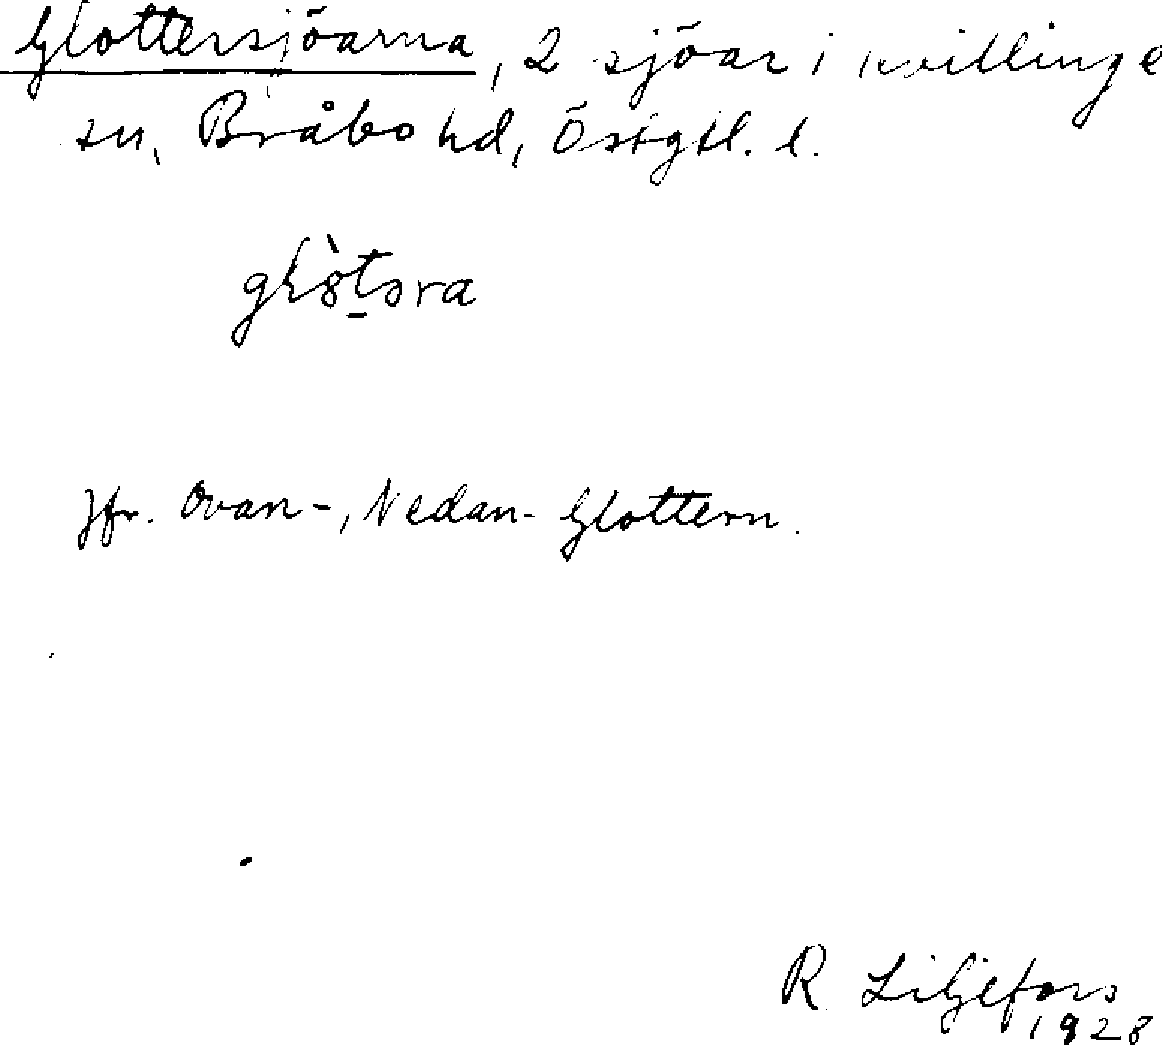 Glottersjöarna, 2 sjöar i Kvillinge
sn, Bråbo hd, Östgtl. l.
Jfr. Ovan-, Nedan- Glottern.
R Liljefors
1928